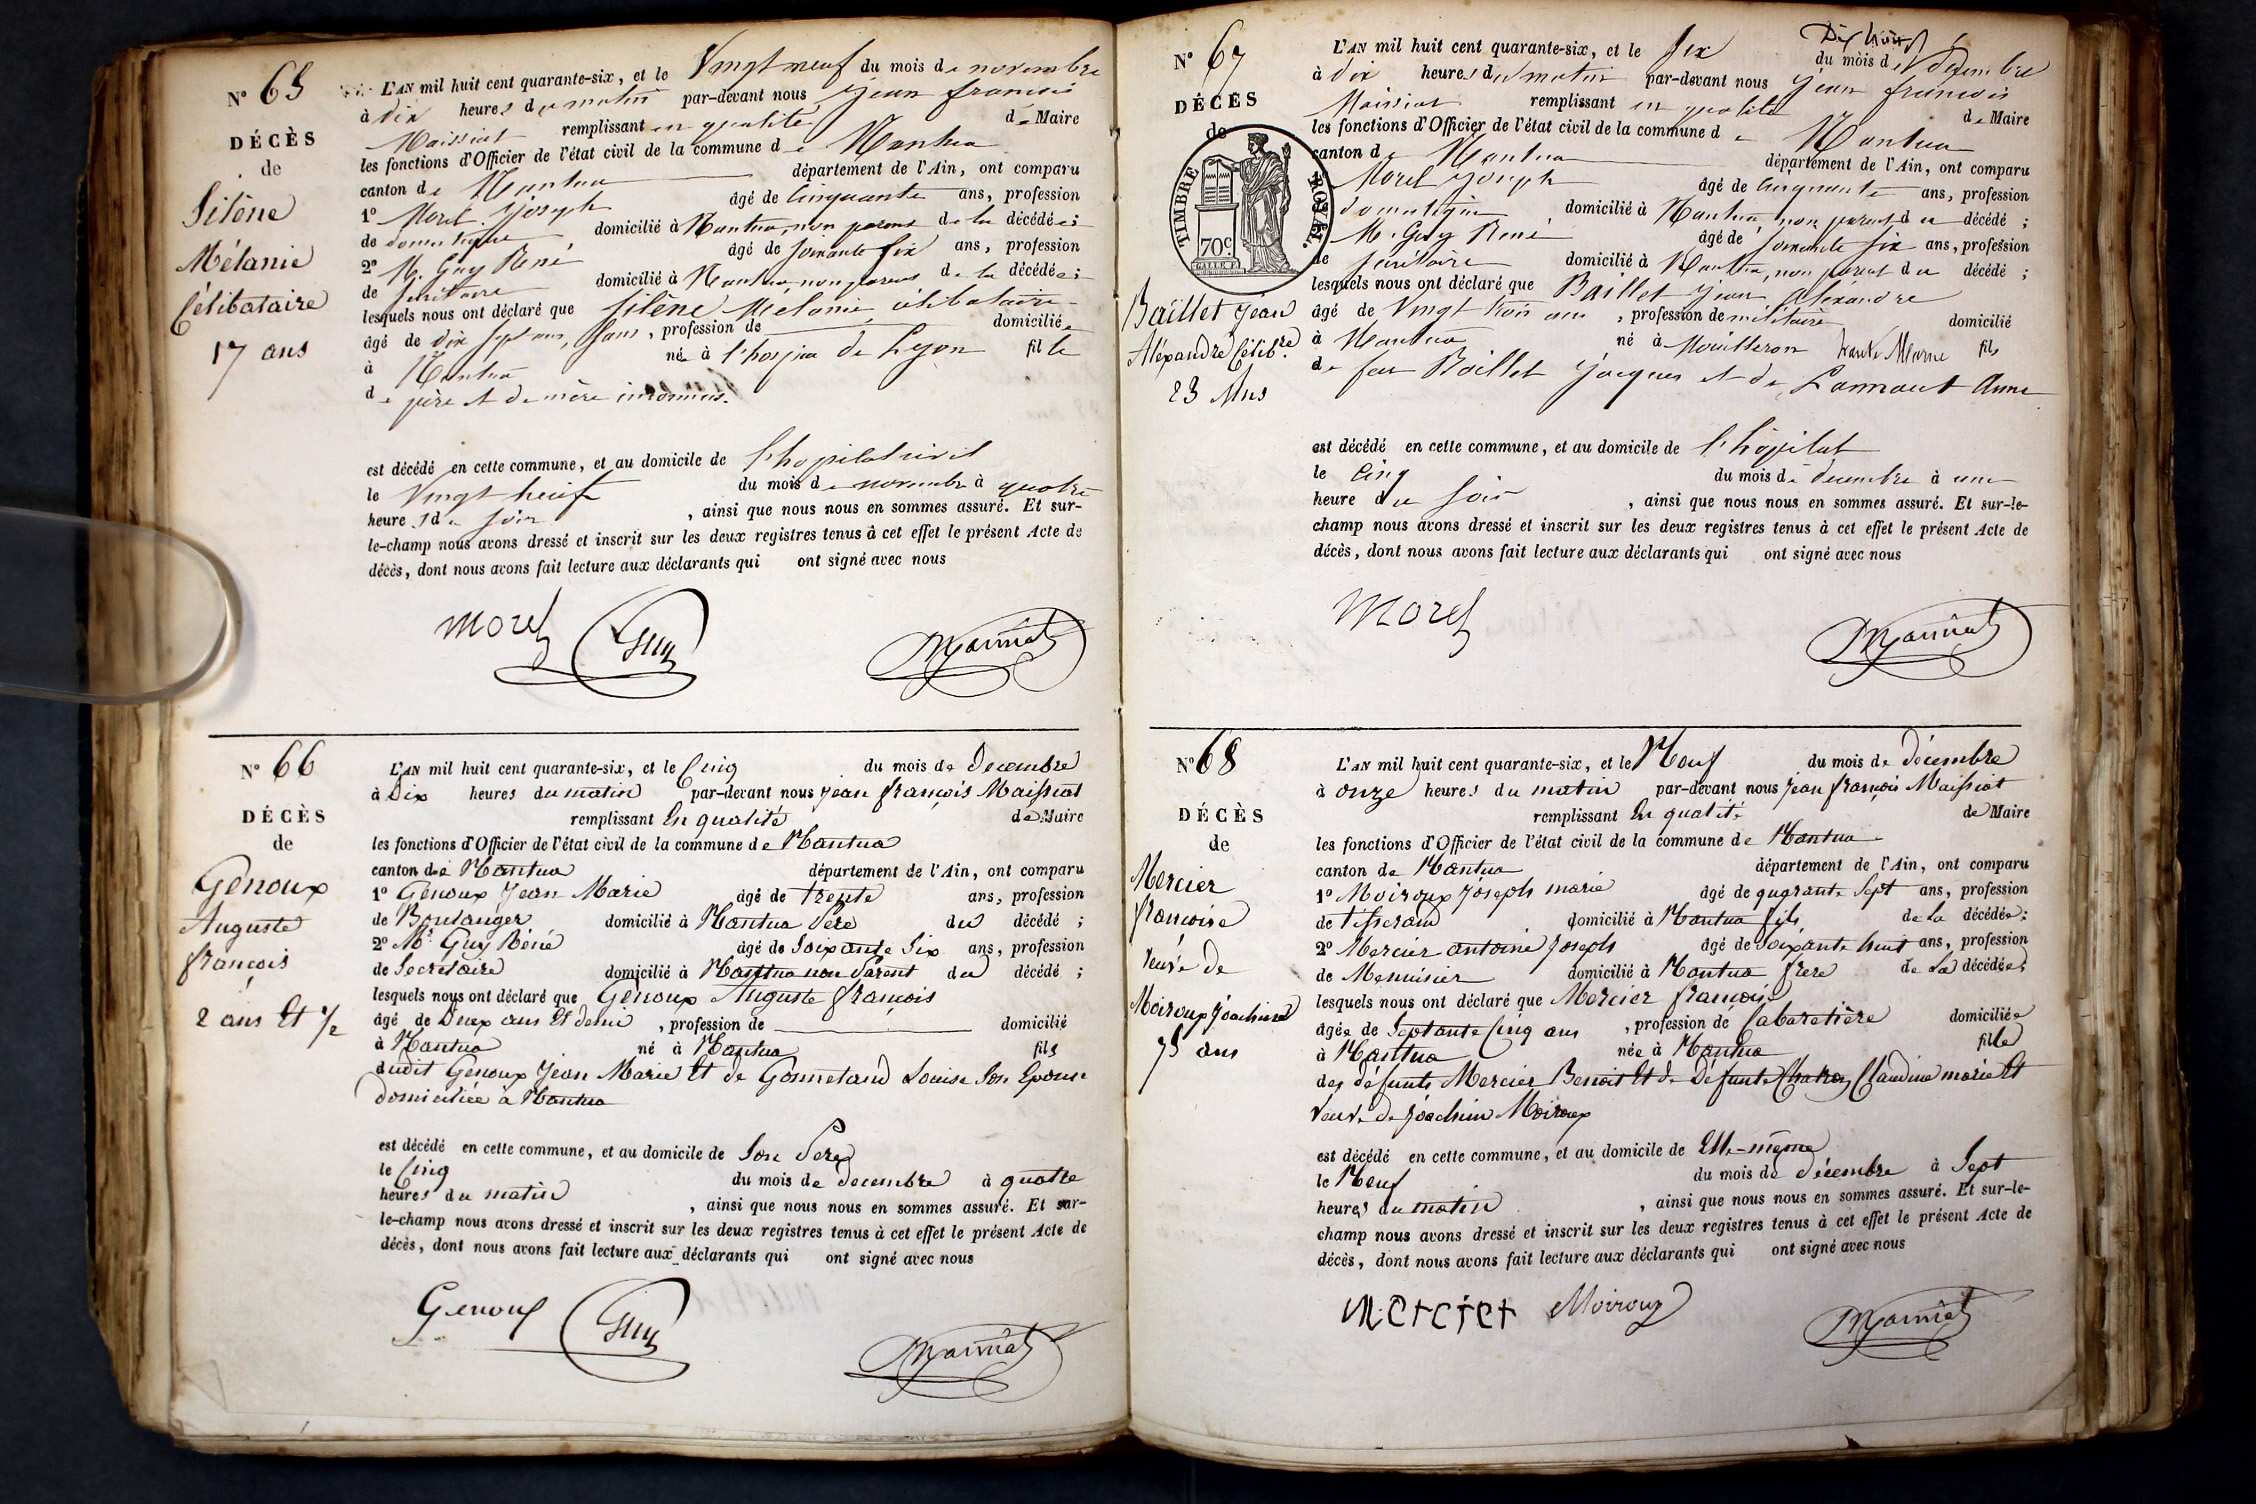 N° 65
DÉCÈS
de
Silène
Mélanie
Célibataire
17 ans
L'AN mil huit cent quarante-six, et le Vingt neuf du mois de novembre
à dix heures du matin par-devant nous Jean françois
Maissiat remplissant en qualité de Maire
les fonctions d'Officier de l'état civil de la commune de Nantua
canton de Nantua département de l'Ain, ont comparu
1° Morel Joseph âgé de Cinquante ans, profession
de domestique domicilié à Nantua, non parent de la décédée;
2° M. Guy René âgé de soixante six ans, profession
de secrétaire domicilié à Nantua, non parent de la décédée;
lesquels nous ont déclaré que Silène Mélanie célibataire
âgé de dix sept ans, sans, profession de domiciliée
à Nantua née à l'hospice de Lyon fille
de père et de mère inconnus.
est décédé en cette commune, et au domicile de l'hopital civil
le Vingt huit du mois de novembre à quatre
heures du soir, ainsi que nous nous en sommes assuré. Et sur-
le-champ nous avons dressé et inscrit sur les deux registres tenus à cet effet le présent Acte de
décès, dont nous avons fait lecture aux déclarants qui ont signé avec nous
Morel Guy Maissiat
N° 66
DÉCÈS
de
Génoux
Auguste
françois
2 ans Et 1/2
L'AN mil huit cent quarante-six, et le Cinq du mois de Decembre
à Dix heures du matin par-devant nous Jean françois Maissiat
remplissant En qualité de Maire
les fonctions d'Officier de l'état civil de la commune de Nantua
canton de Nantua département de l'Ain, ont comparu
1° Génoux Jean Marie âgé de trente ans, profession
de Boulanger domicilié à Nantua Père du décédé;
2° Mr Guy Réné âgé de Soixante Six ans, profession
de Secretaire domicilié à Nantua non Parent du décédé;
lesquels nous ont déclaré que Génoux Auguste françois
âgé de Deux ans Et demi, profession de domicilié
à Nantua né à Nantua fils
dudit Génoux Jean Marie Et de Gonnetand Louise Son Epouse
domiciliée à Nantua
est décédé en cette commune, et au domicile de Son Pere
le Cinq du mois de Decembre à quatre
heures du matin, ainsi que nous nous en sommes assuré. Et sur-
le-champ nous avons dressé et inscrit sur les deux registres tenus à cet effet le présent Acte de
décès, dont nous avons fait lecture aux déclarants qui ont signé avec nous
Genoux Guy Maissiat
N° 67
DÉCÈS
de
TIMBRE ROYAL.
70c
Baillet Jean
Aléxandre Célibre
23 Ans
L'AN mil huit cent quarante-six, et le six du mois de décembre
à dix heures du matin par-devant nous Jean françois
Maissiat remplissant en qualité de Maire
les fonctions d'Officier de l'état civil de la commune de Nantua
canton de Nantua département de l'Ain, ont comparu
Morel Joseph âgé de Cinquante ans, profession
domestique domicilié à Nantua, non parent du décédé;
M. Guy René âgé de soixante six ans, profession
de secrétaire domicilié à Nantua, non parent du décédé;
lesquels nous ont déclaré que Baillet Jean Aléxandre
âgé de Vingt trois ans, profession de militaire domicilié
à Nantua né à haute Marne fils
de feu Baillet Jacques et de Anne
est décédé en cette commune, et au domicile de l'hôpital
le Cinq du mois de decembre à une
heure du soir, ainsi que nous nous en sommes assuré. Et sur-le-
champ nous avons dressé et inscrit sur les deux registres tenus à cet effet le présent Acte de
décès, dont nous avons fait lecture aux déclarants qui ont signé avec nous
Morel Maissiat
N° 68
DÉCÈS
de
Mercier
françoise
veuve de
Moiroux Joachim
75 ans
L'AN mil huit cent quarante-six, et le Neuf du mois de décembre
à onze heures du matin par-devant nous Jean françois Maissiat
remplissant En qualité de Maire
les fonctions d'Officier de l'état civil de la commune de Nantua
canton de Nantua département de l'Ain, ont comparu
1° Moiroux Joseph marie âgé de quarante Sept ans, profession
de tisserand domicilié à Nantua fils de La décédée;
2° Mercier antoine Joseph âgé de soixante huit ans, profession
de Menuisier domicilié à Nantua frere de La décédée;
lesquels nous ont déclaré que Mercier françoise
âgée de Septante Cinq ans, profession de Cabaretière domiciliée
à Nantua née à Nantua fille
des défunts Mercier Benoit Et de Défunte Claudine marie Et
veuve de Joachim Moiroux
est décédé en cette commune, et au domicile de Elle-même
le Neuf du mois de décembre à Sept
heures du matin, ainsi que nous nous en sommes assuré. Et sur-le-
champ nous avons dressé et inscrit sur les deux registres tenus à cet effet le présent Acte de
décès, dont nous avons fait lecture aux déclarants qui ont signé avec nous
Mercier Moiroux Maissiat